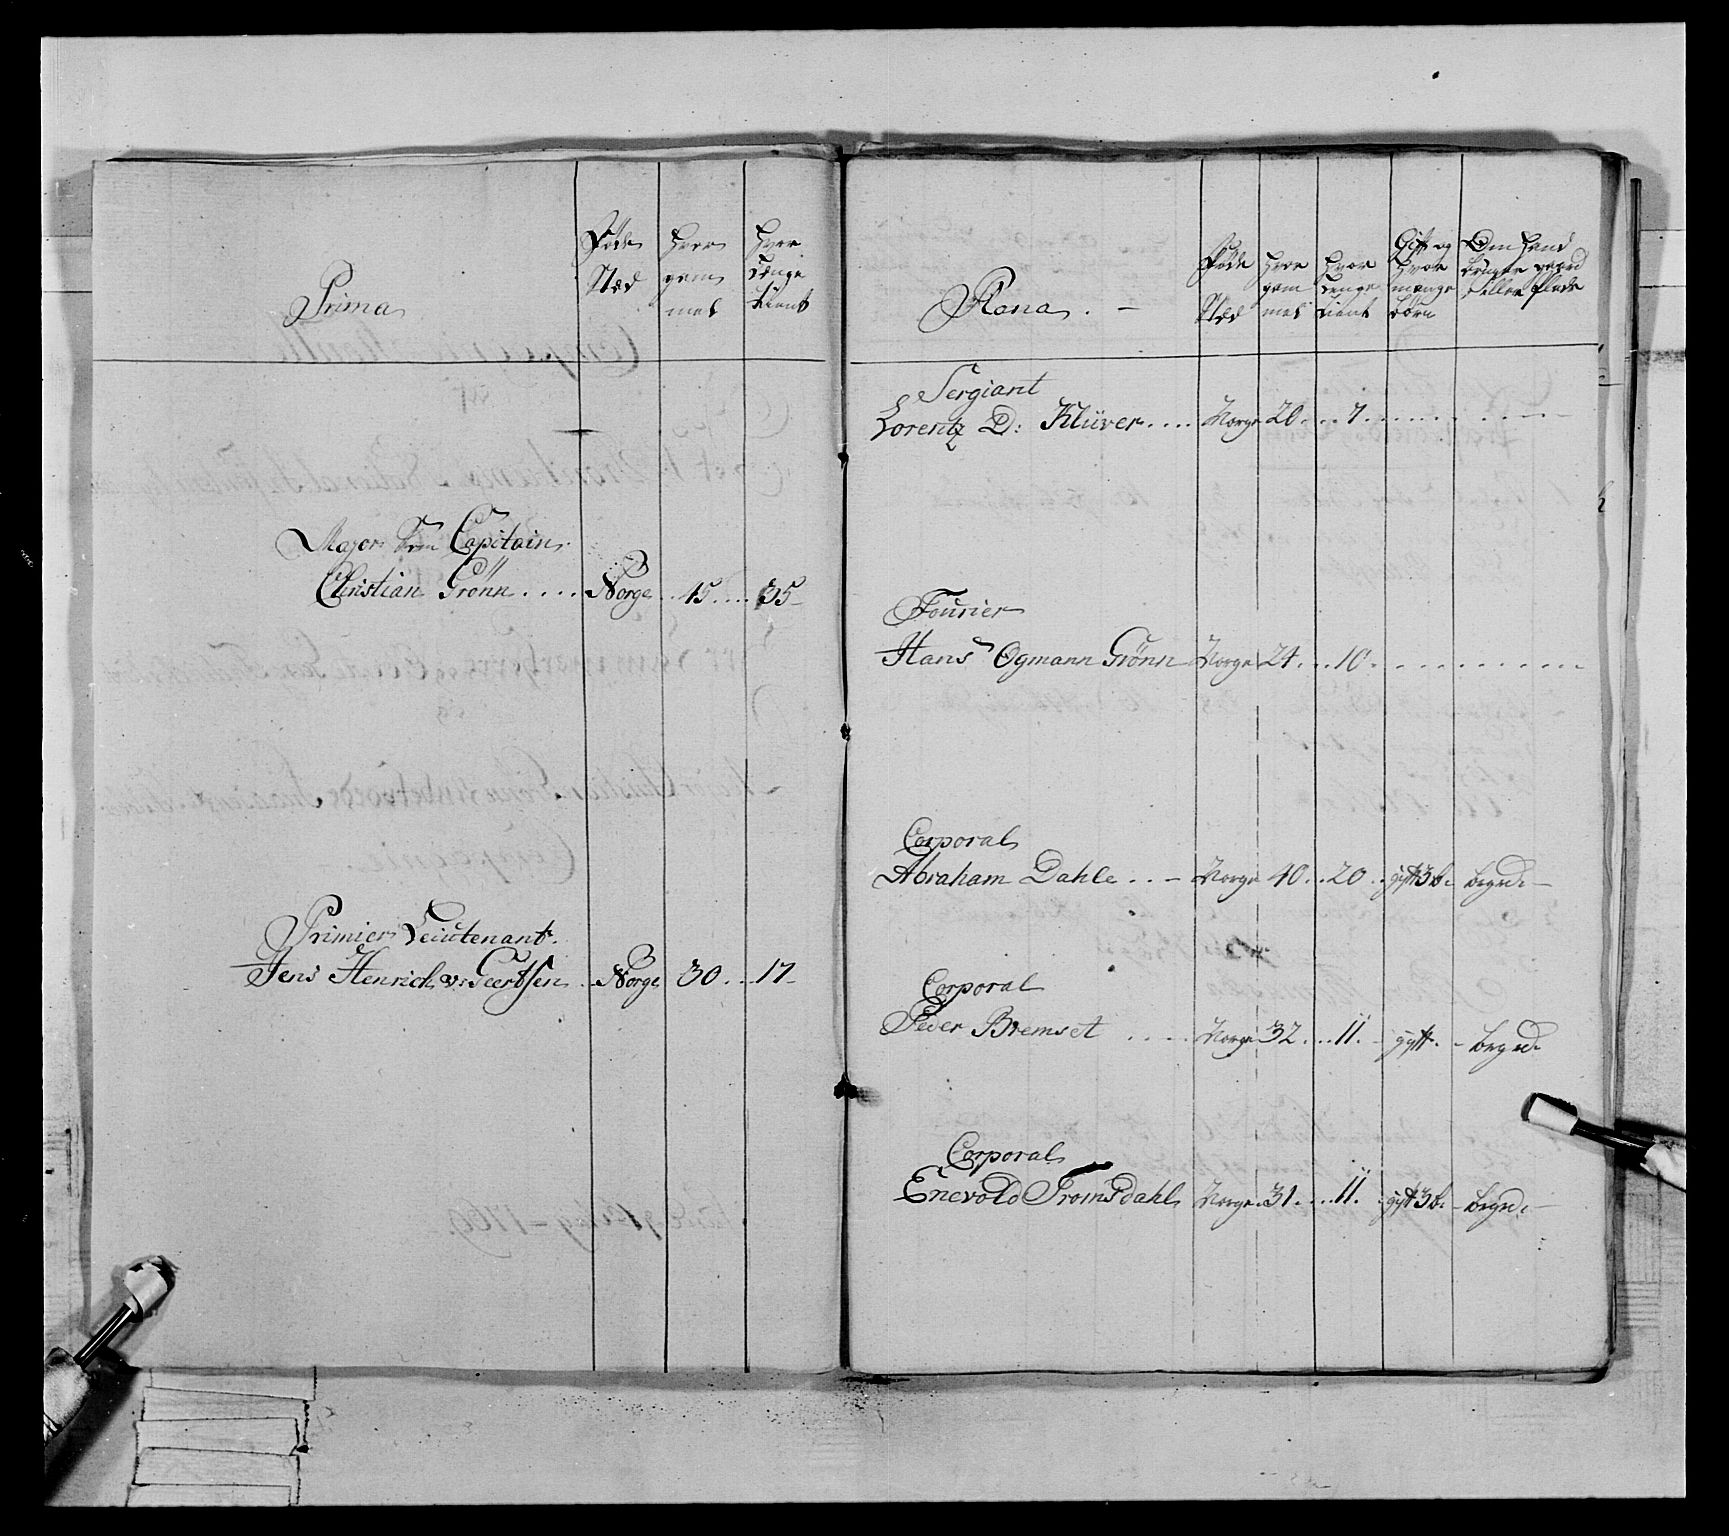 Prima
Føde
Stæd
Hvor
gam
mel
Hvor
Længe
tient
Major som Capitain
Christian Grönn .... Norge .. 45 .... 35
Primier Leiutenant.
Jens Henrich v: Geertsen .. Norge 30 .. 17
Plana . -
Føde
Stæd
Hvor
gam
mel
Hvor
Længe
tient
Gift og
Hvor
mange
Børn
Om Hand
bruger gaard
eller Plads
Sergiant
Lorentz D: Klüver .... Norge 20 ... 7 ....
Fourier
Hans Ogmann Grönn Norge 24 ... 10 ....
Corporal
Abraham Dahle .. - Norge 40 .. 20 .. gift 3b. bogrd.
Corporal
Peder Bremset .... Norge 32 ... 11. - gift. - bogrd.
Corporal
Enevold Tromsdahl Norge. 31 .... 11. gift 3b. - bogrd.